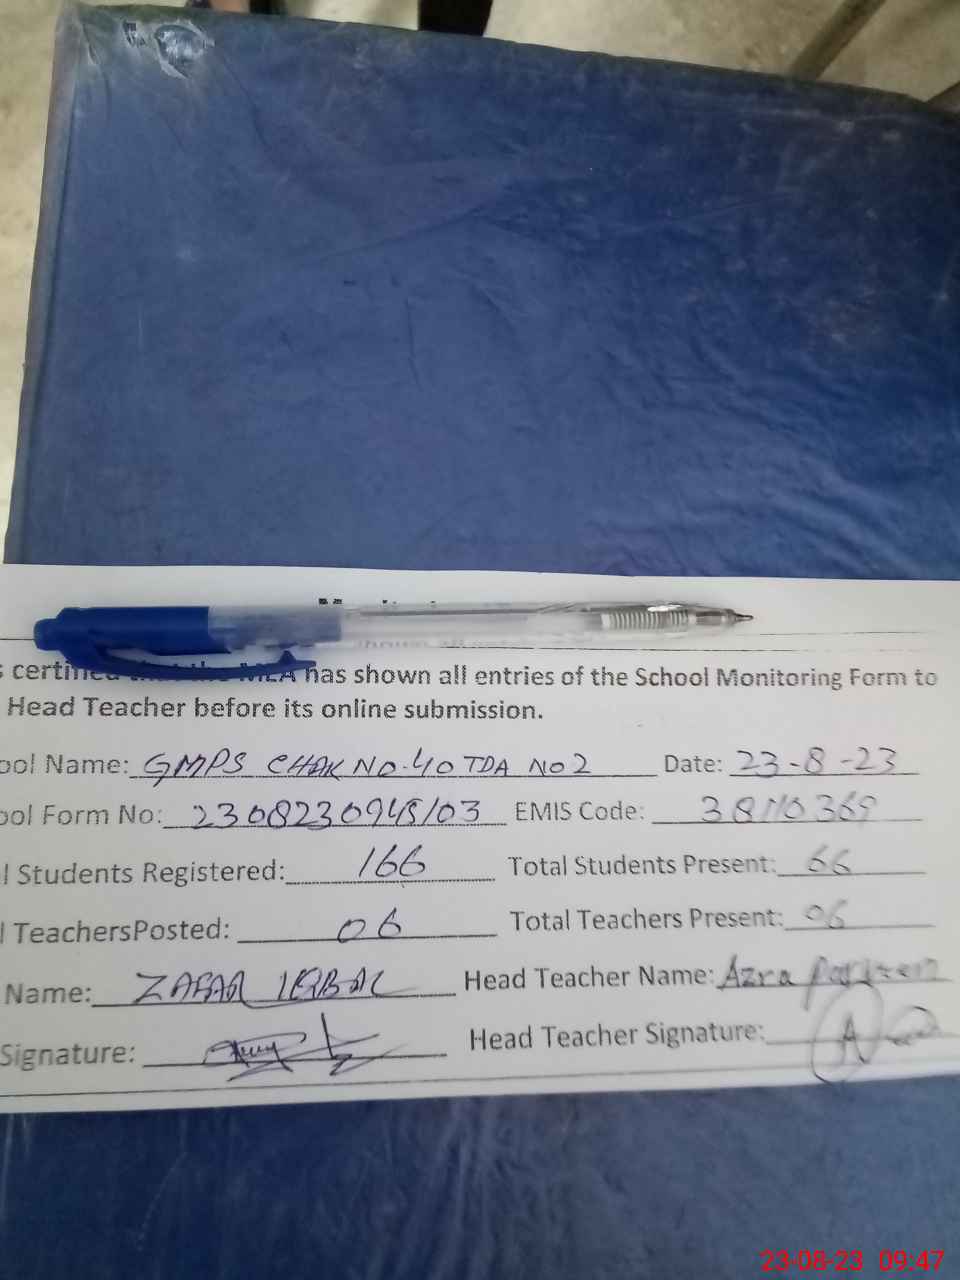 certified that the MEA has shown all entries of the School Monitoring Form to
Head Teacher before its online submission.
ool Name: GMPS CHAK NO.40 TDA NO 2 Date: 23-8-23
ool Form No: 230823094S/03 EMIS Code: 38110369
l Students Registered: 166 Total Students Present: 66
l TeachersPosted: 06 Total Teachers Present: 06
Name: ZAFAR IQBAL Head Teacher Name: Azra Parveen
Signature: Head Teacher Signature:
23-08-23 09:47